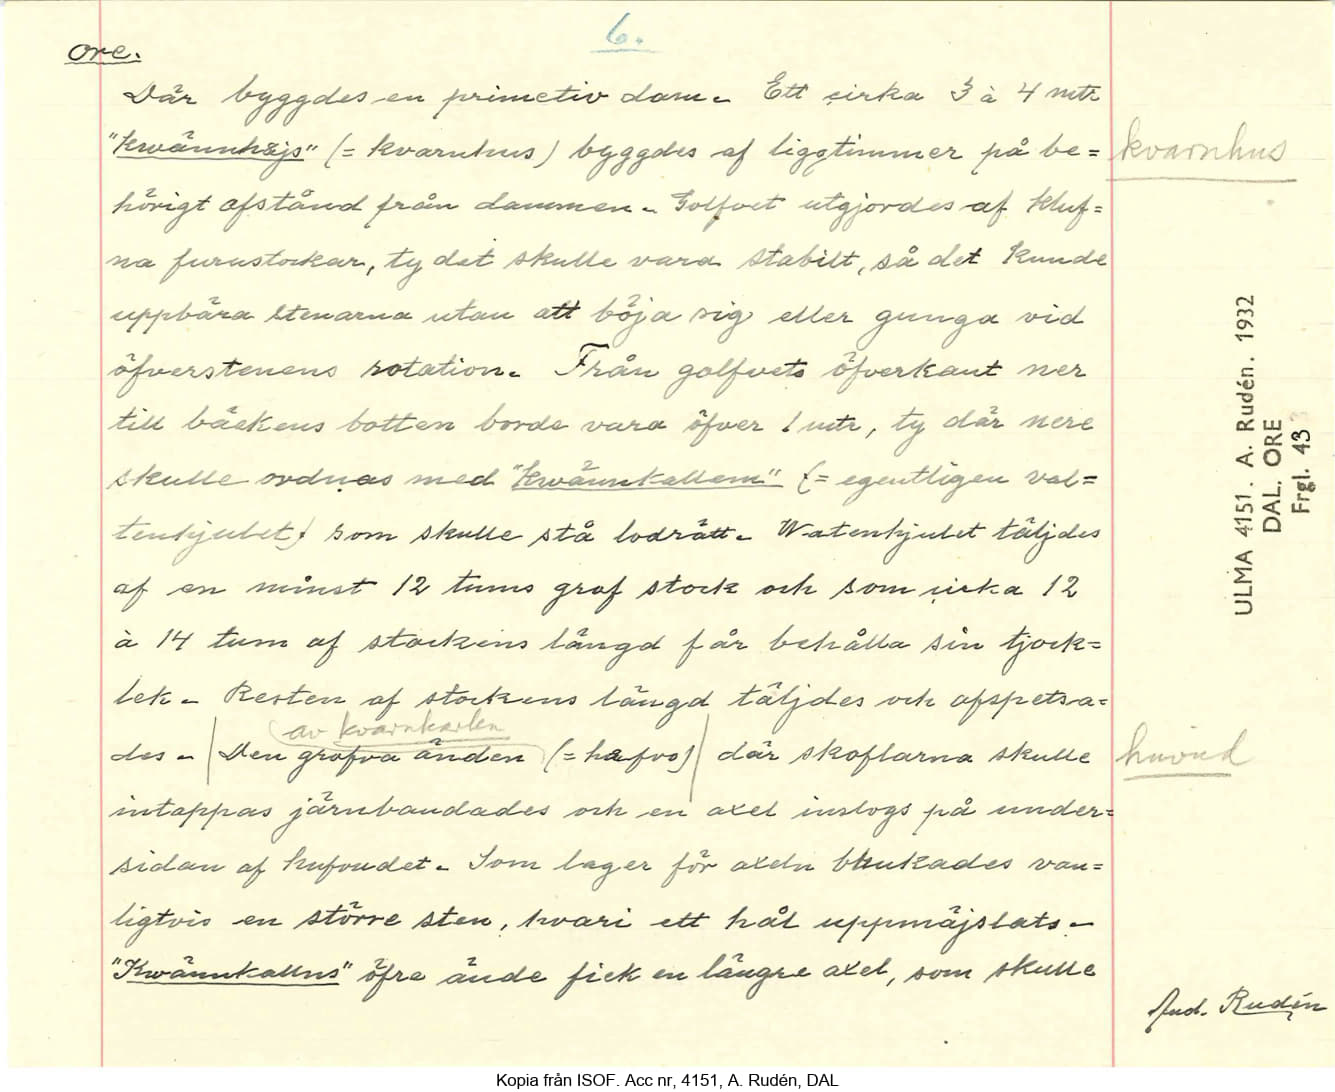 6.
Ore.
Där byggdes en primetiv dam. Ett cirka 3 à 4 mtr
"Kwännhäjs" (= kvarnhus) byggdes af liggtimmer på be=
kvarnhus
hörigt afstånd från dammen. Golfvet utgjordes af kluf=
na furustockar, ty det skulle vara stabilt, så det kunde
uppbära stenarna utan att böja sig eller gunga vid
öfverstenens rotation. Från golfvets öfverkant ner
till bäckens botten borde vara öfver 1 mtr, ty där nere
skulle ordnas med "Kwännkallem" (= egentligen vat=
tenhjulet) som skulle stå lodrätt. Watenhjulet täljdes
af en minst 12 tums graf stock och som cirka 12
à 14 tum af stockens längd får behålla sin tjock=
lek. Resten af stockens längd täljdes och afspetsa=
av kvarnkarlen
des. Den grofva änden (= hufvo) där skoflarna skulle
huvud
intappas järnbandades och en axel inslogs på under=
sidan af hufvudet. Som lager för axeln brukades van=
ligtvis en större sten, hvari ett hål uppmäjslats.
"Kwännkallns" öfre ände fick en längre axel, som skulle
And. Rudén
ULMA 4151. A. Rudén. 1932
DAL. ORE
Frgl. 43
Kopia från ISOF. Acc nr, 4151, A. Rudén, DAL